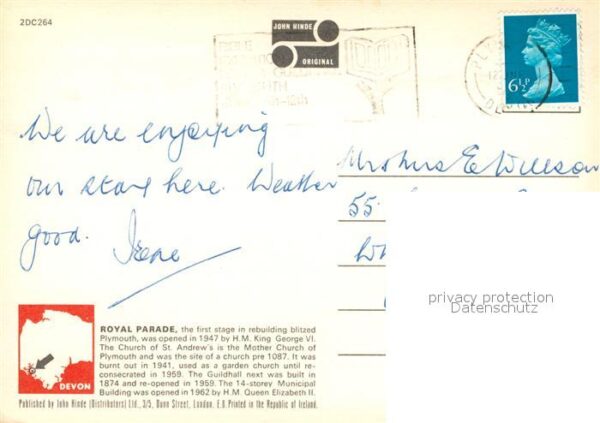 2DC264
JOHN HINDE
ORIGINAL
6½P
We are enjoying
our stay here. Weather
good. Irene
Mr & Mrs E Willson
55
privacy protection
Datenschutz
ROYAL PARADE, the first stage in rebuilding blitzed
Plymouth, was opened in 1947 by H.M. King George VI.
The Church of St. Andrew's is the Mother Church of
Plymouth and was the site of a church pre 1087. It was
burnt out in 1941, used as a garden church until re-
consecrated in 1959. The Guildhall next was built in
1874 and re-opened in 1959. The 14-storey Municipal
Building was opened in 1962 by H.M. Queen Elizabeth II.
DEVON
Published by John Hinde (Distributors) Ltd., 3/5, Dunn Street, London, E.8. Printed in the Republic of Ireland.